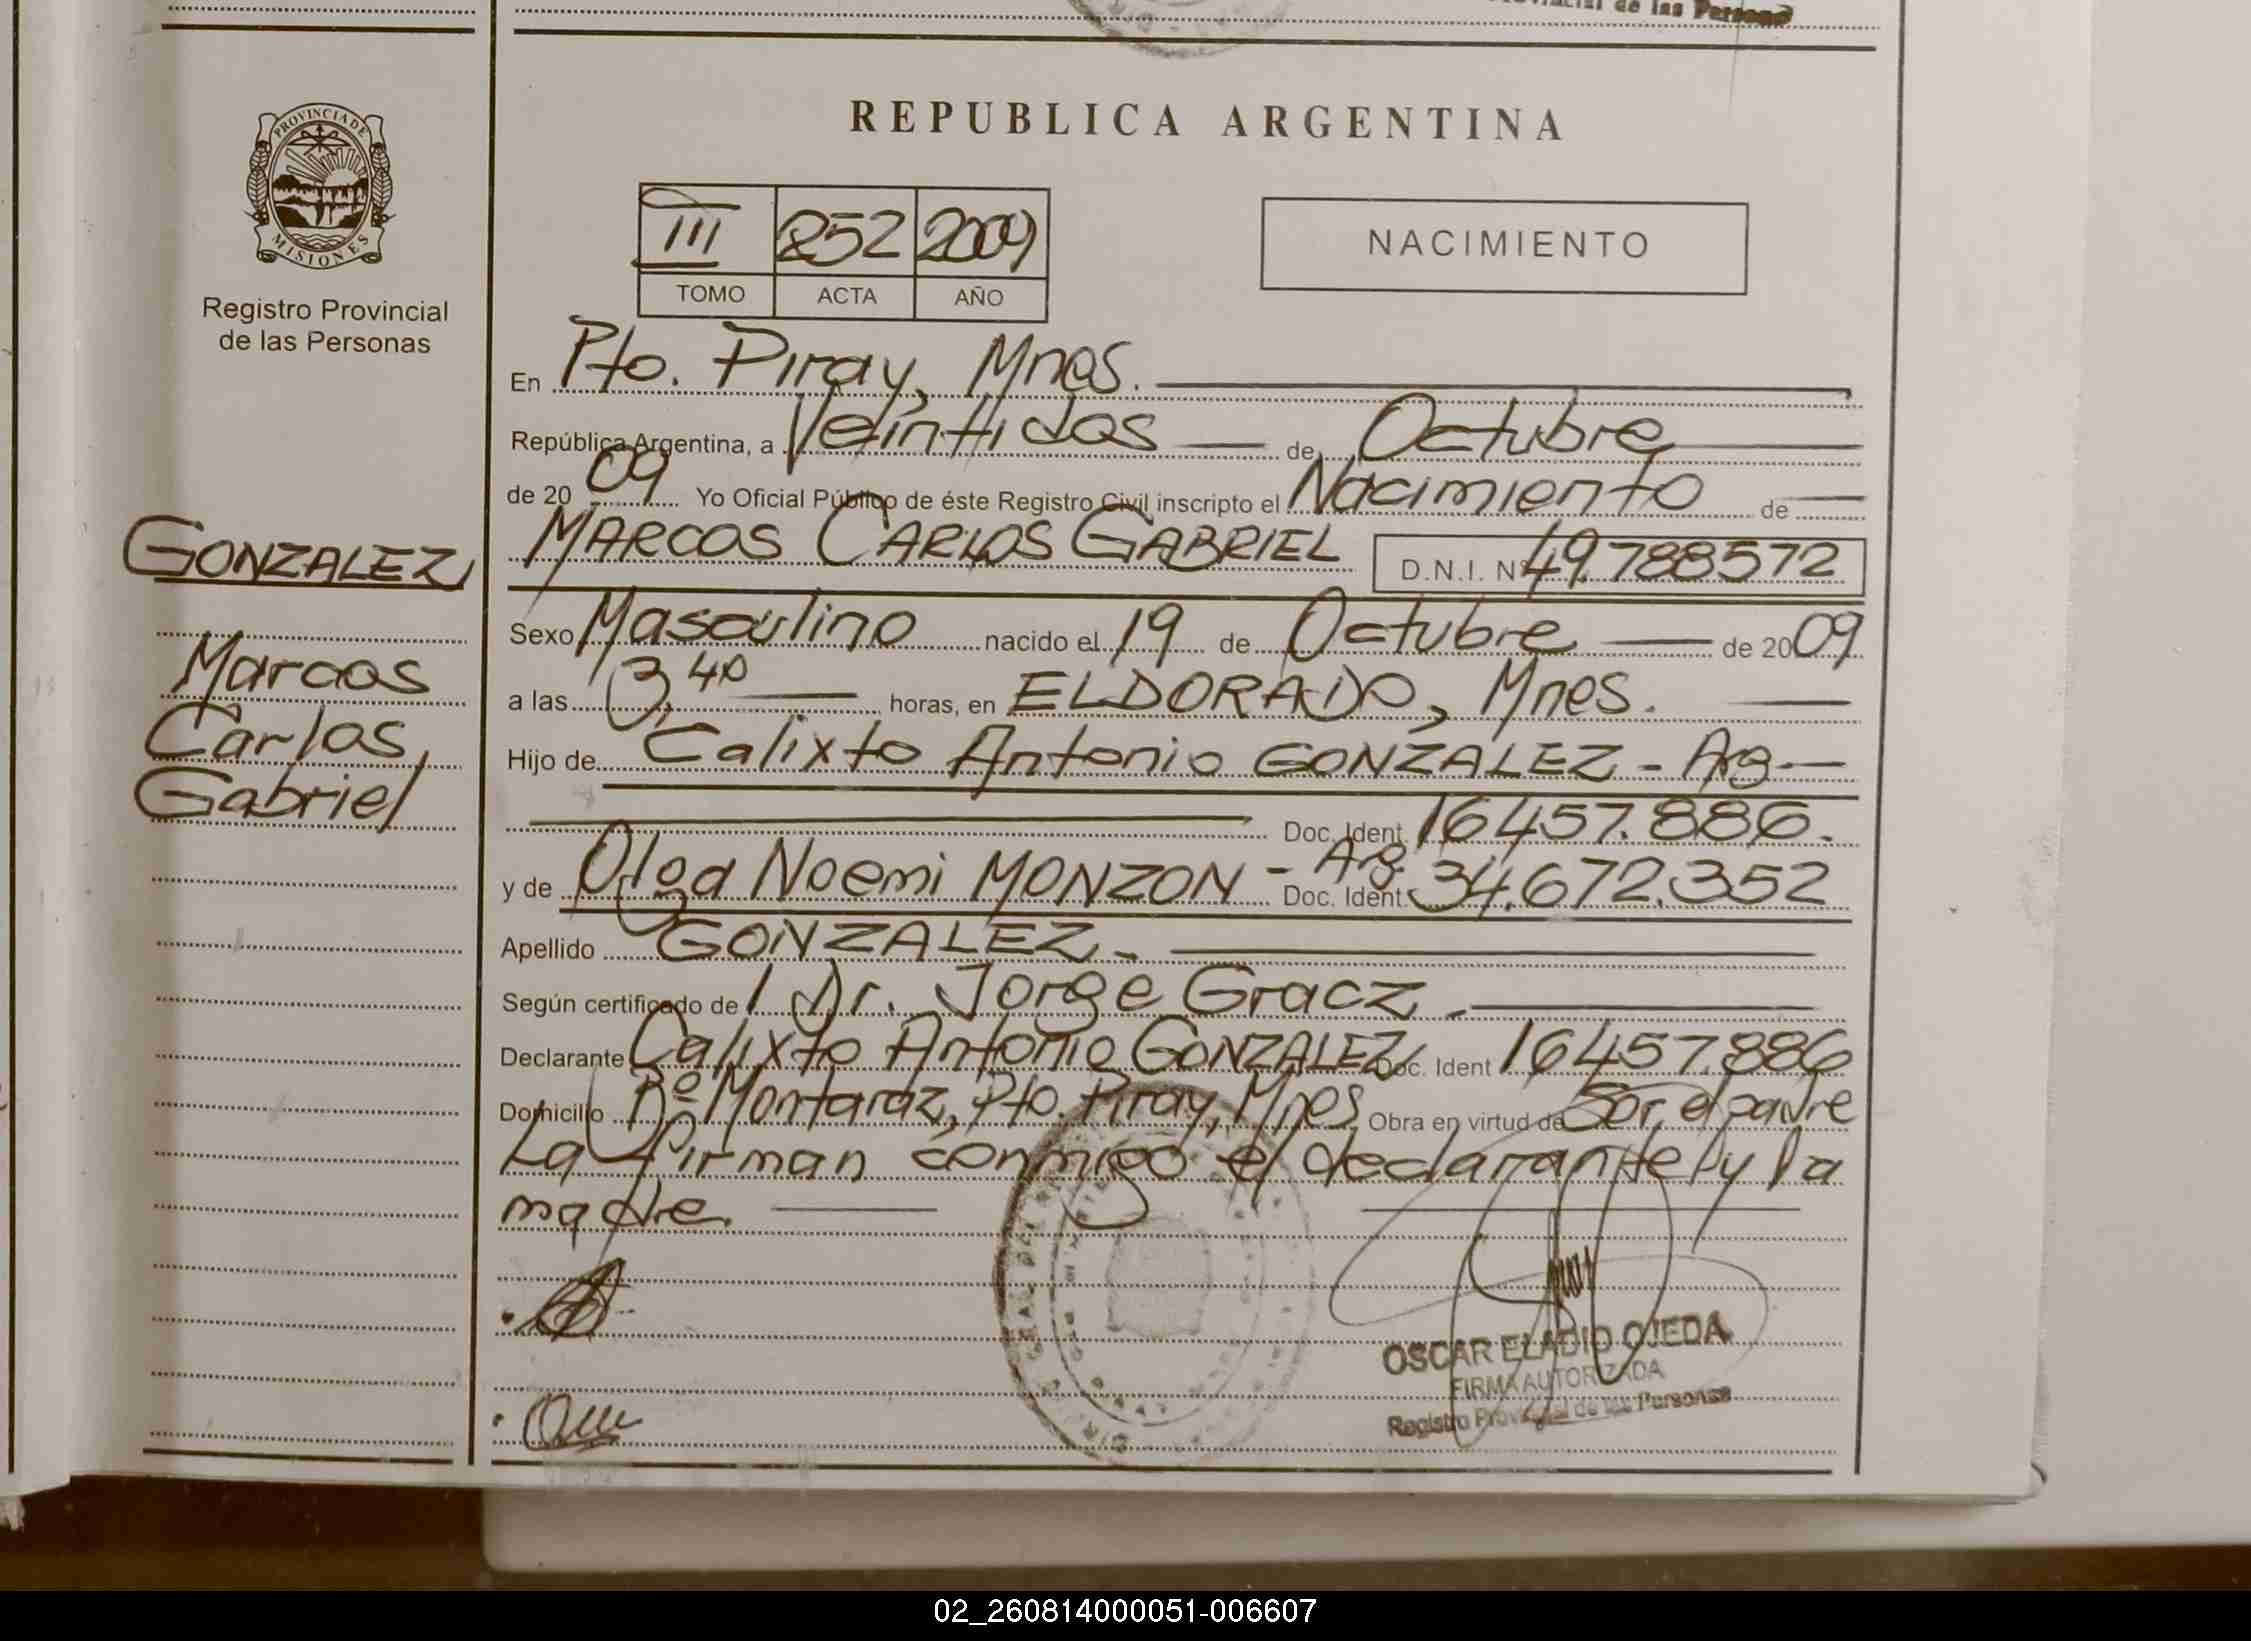 de las Persona
REPUBLICA ARGENTINA
PROVINCIA DE
MISIONES
Registro Provincial
de las Personas
III 252 2009
TOMO ACTA AÑO
NACIMIENTO
En Pto. Piray, Mnes.
República Argentina, a Veintidos de Octubre
de 20 09 Yo Oficial Público de éste Registro Civil inscripto el Nacimiento de
GONZALEZ
Marcos
Carlos
Gabriel
MARCOS CARLOS GABRIEL D.N.I. Nº 49.788572
Sexo Masculino nacido el 19 de Octubre de 2009
a las 3,40 horas, en ELDORADO, Mnes.
Hijo de Calixto Antonio GONZALEZ - Arg
Doc. Ident. 16457.886.
y de Olga Noemi MONZON - Arg. Doc. Ident. 34.672.352
Apellido GONZALEZ.
Según certificado de Dr. Jorge Gracz.
Declarante Calixto Antonio GONZALEZ Doc. Ident 16457.886
Domicilio Bº Montaraz, Pto. Piray, Mnes Obra en virtud de Ser el padre
La firman conmigo el declarante y la
madre.
OSCAR ELADIO OJEDA
FIRMA AUTORIZADA
Registro Provincial de las Personas
02_260814000051-006607